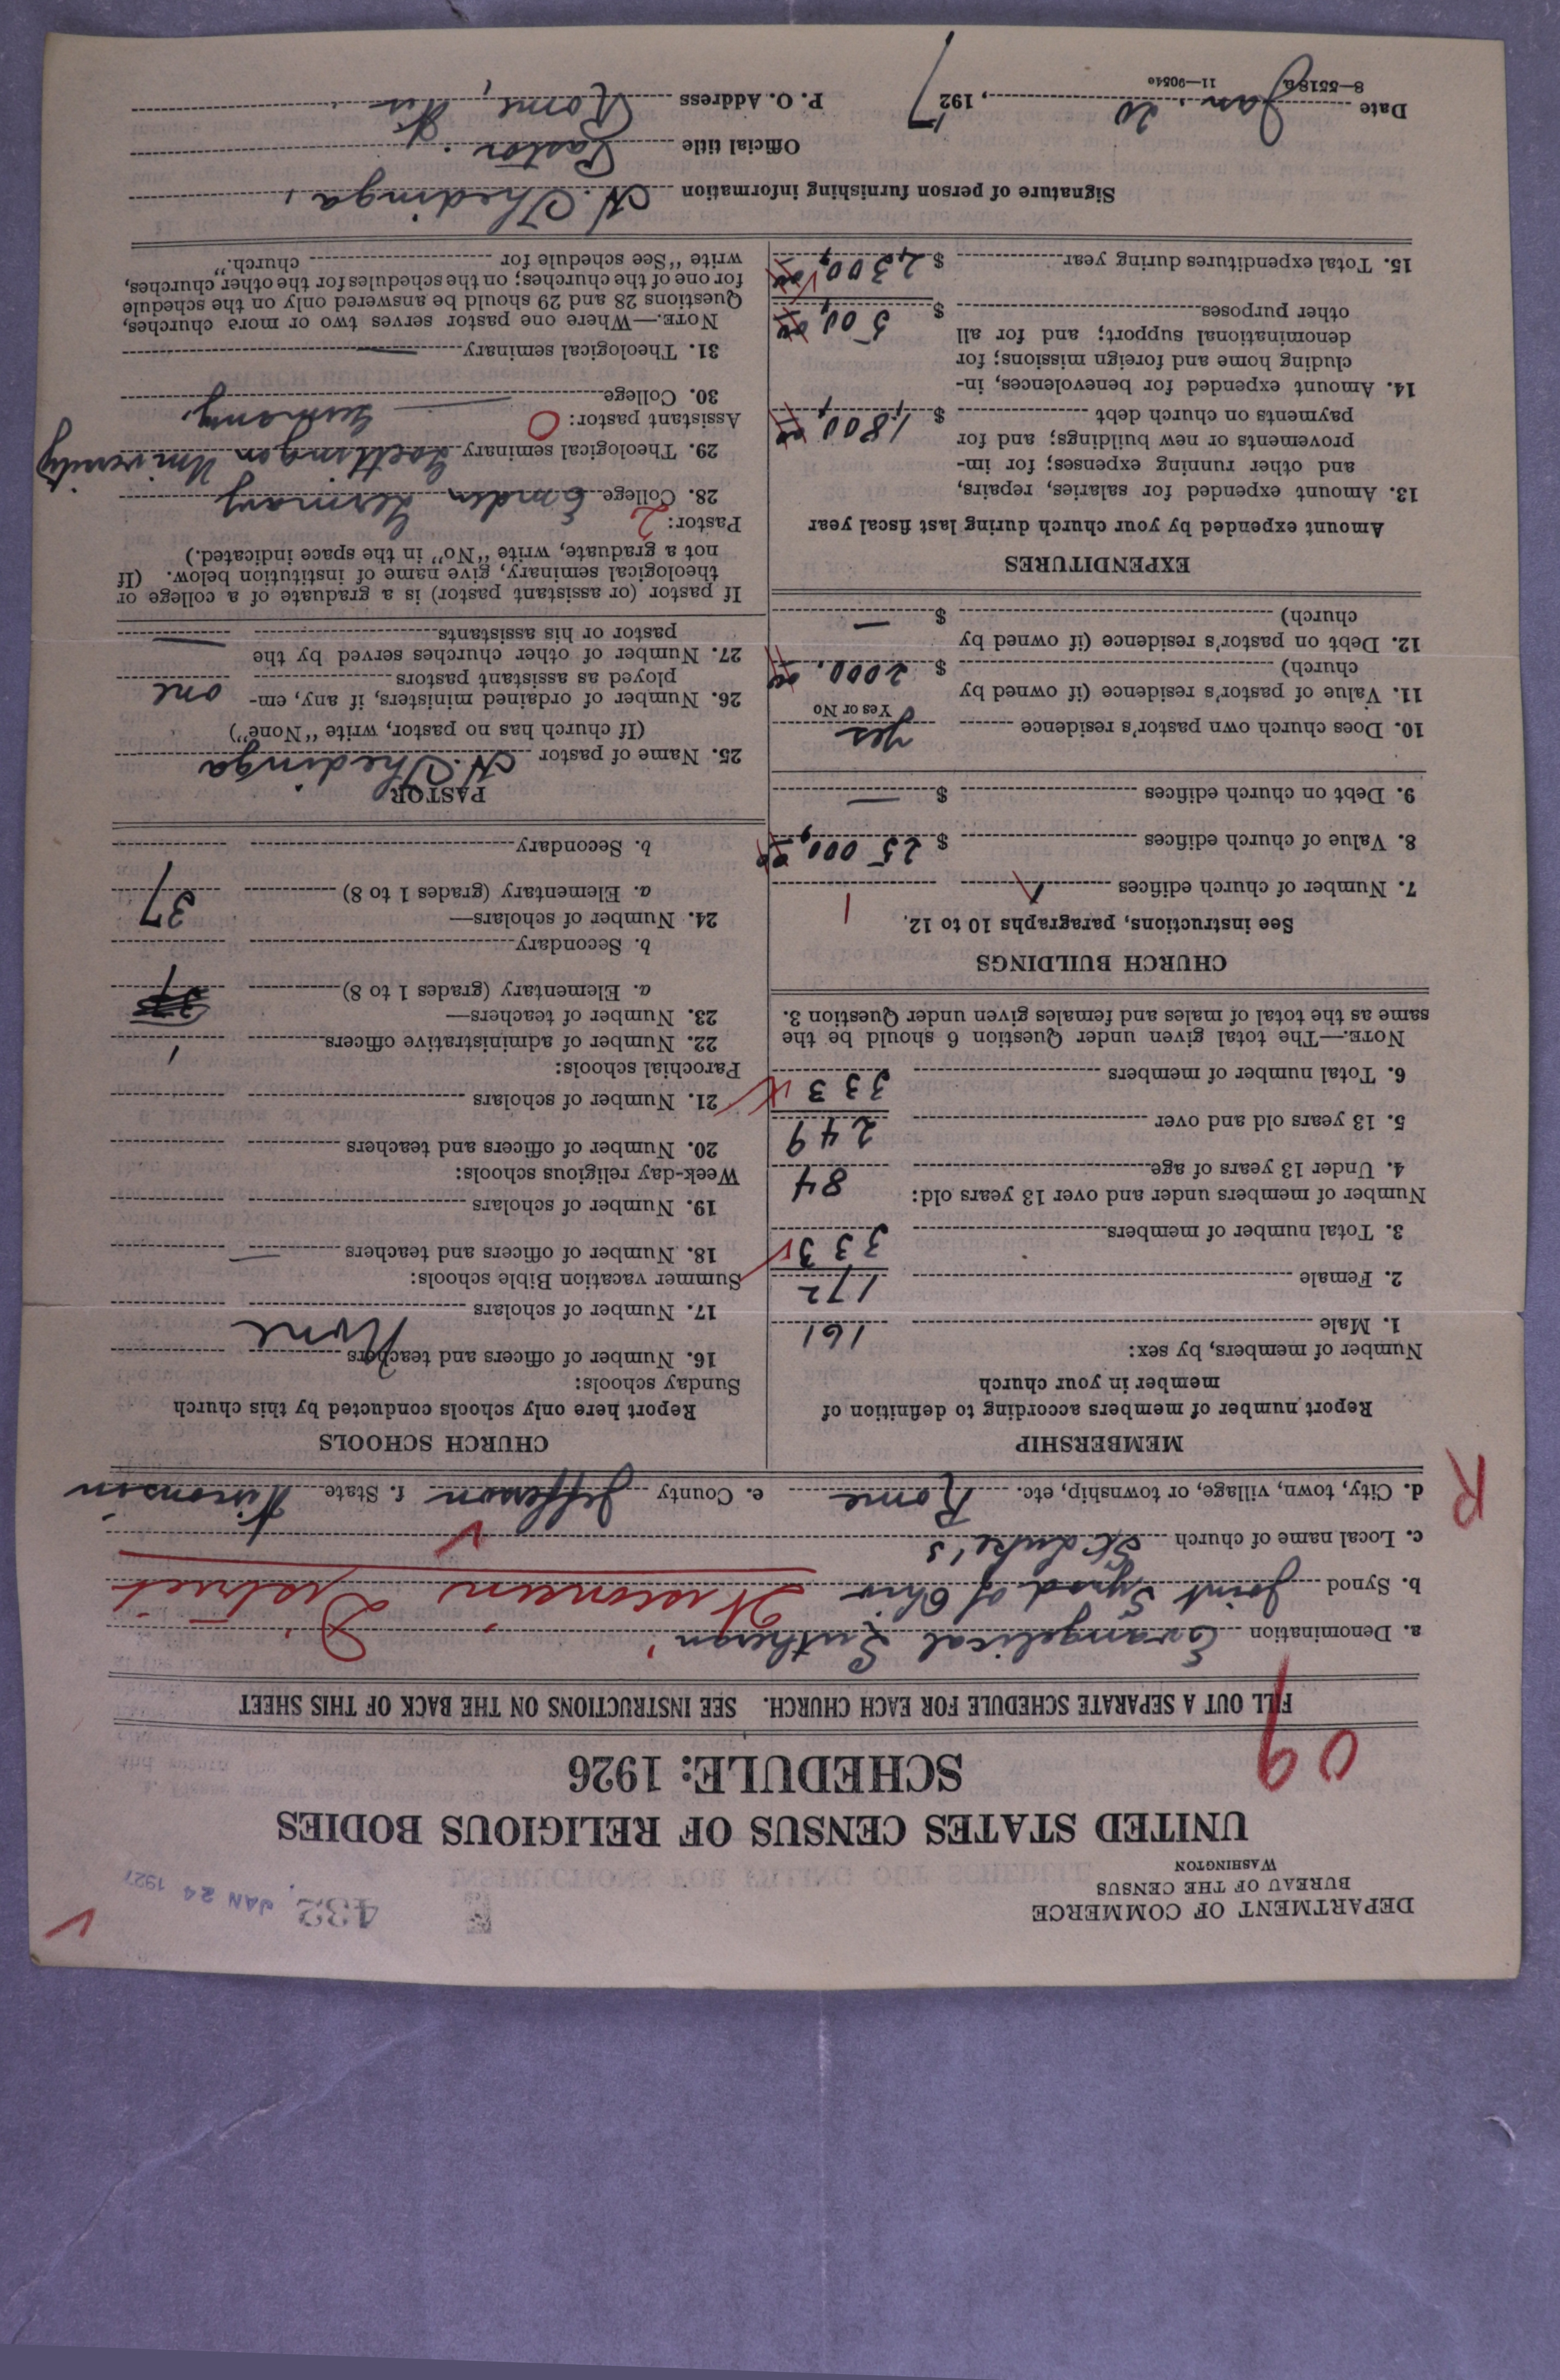 DEPARTMENT OF COMMERCE
BUREAU OF THE CENSUS
WASHINGTON
432
JAN 24 1927
UNITED STATES CENSUS OF RELIGIOUS BODIES
SCHEDULE: 1926
09
FILL OUT A SEPARATE SCHEDULE FOR EACH CHURCH. SEE INSTRUCTIONS ON THE BACK OF THIS SHEET
a. Denomination Evangelical Lutheran
b. Synod Joint Synod of Ohio Wisconsin District
c. Local name of church St Luke's
d. City, town, village, or township, etc. Rome e. County Jefferson f. State Wisconsin
R
MEMBERSHIP
Report number of members according to definition of
member in your church
Number of members, by sex:
1. Male 161
2. Female 172
3. Total number of members 333
Number of members under and over 13 years old:
4. Under 13 years of age 84
5. 13 years old and over 249
6. Total number of members 333
NOTE.—The total given under Question 6 should be the
same as the total of males and females given under Question 3.
CHURCH BUILDINGS
See instructions, paragraphs 10 to 12.
7. Number of church edifices 1
8. Value of church edifices $ 25 000, 00
9. Debt on church edifices $ —
10. Does church own pastor's residence yes
Yes or No
11. Value of pastor's residence (if owned by
church) $ 2000. 00
12. Debt on pastor's residence (if owned by
church) $ —
EXPENDITURES
Amount expended by your church during last fiscal year
13. Amount expended for salaries, repairs,
and other running expenses; for im-
provements or new buildings; and for
payments on church debt $ 1,800, 00
14. Amount expended for benevolences, in-
cluding home and foreign missions; for
denominational support; and for all
other purposes $ 500, 00
15. Total expenditures during year $ 2,300, 00
CHURCH SCHOOLS
Report here only schools conducted by this church
Sunday schools:
16. Number of officers and teachers None
17. Number of scholars
Summer vacation Bible schools:
18. Number of officers and teachers —
19. Number of scholars
Week-day religious schools:
20. Number of officers and teachers
21. Number of scholars
Parochial schools:
22. Number of administrative officers 1
23. Number of teachers—
a. Elementary (grades 1 to 8)
b. Secondary
24. Number of scholars—
a. Elementary (grades 1 to 8) 37
b. Secondary
PASTOR
25. Name of pastor H. Thedinga
(If church has no pastor, write "None")
26. Number of ordained ministers, if any, em-
ployed as assistant pastors one
27. Number of other churches served by the
pastor or his assistants —
If pastor (or assistant pastor) is a graduate of a college or
theological seminary, give name of institution below. (If
not a graduate, write "No" in the space indicated.)
Pastor: 2
28. College Emden Germany
29. Theological seminary Goettingen University
Germany
Assistant pastor: 0
30. College —
31. Theological seminary —
NOTE.—Where one pastor serves two or more churches,
Questions 28 and 29 should be answered only on the schedule
for one of the churches; on the schedules for the other churches,
write "See schedule for church."
Signature of person furnishing information H. Thedinga,
Official title Pastor.
Date Jan. 20, 1927 P. O. Address Rome, Wis
8—5518a 11—9054e